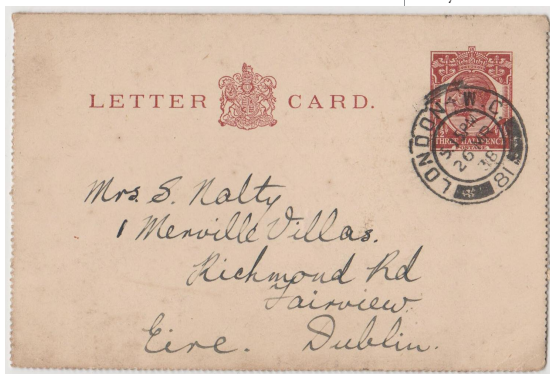 LETTER CARD.
THREE HALFPENCE
POSTAGE
LONDON W.C.
26
38
81
Mrs. S. Nalty
1 Merville Villas.
Richmond Rd
Fairview
Eire. Dublin.